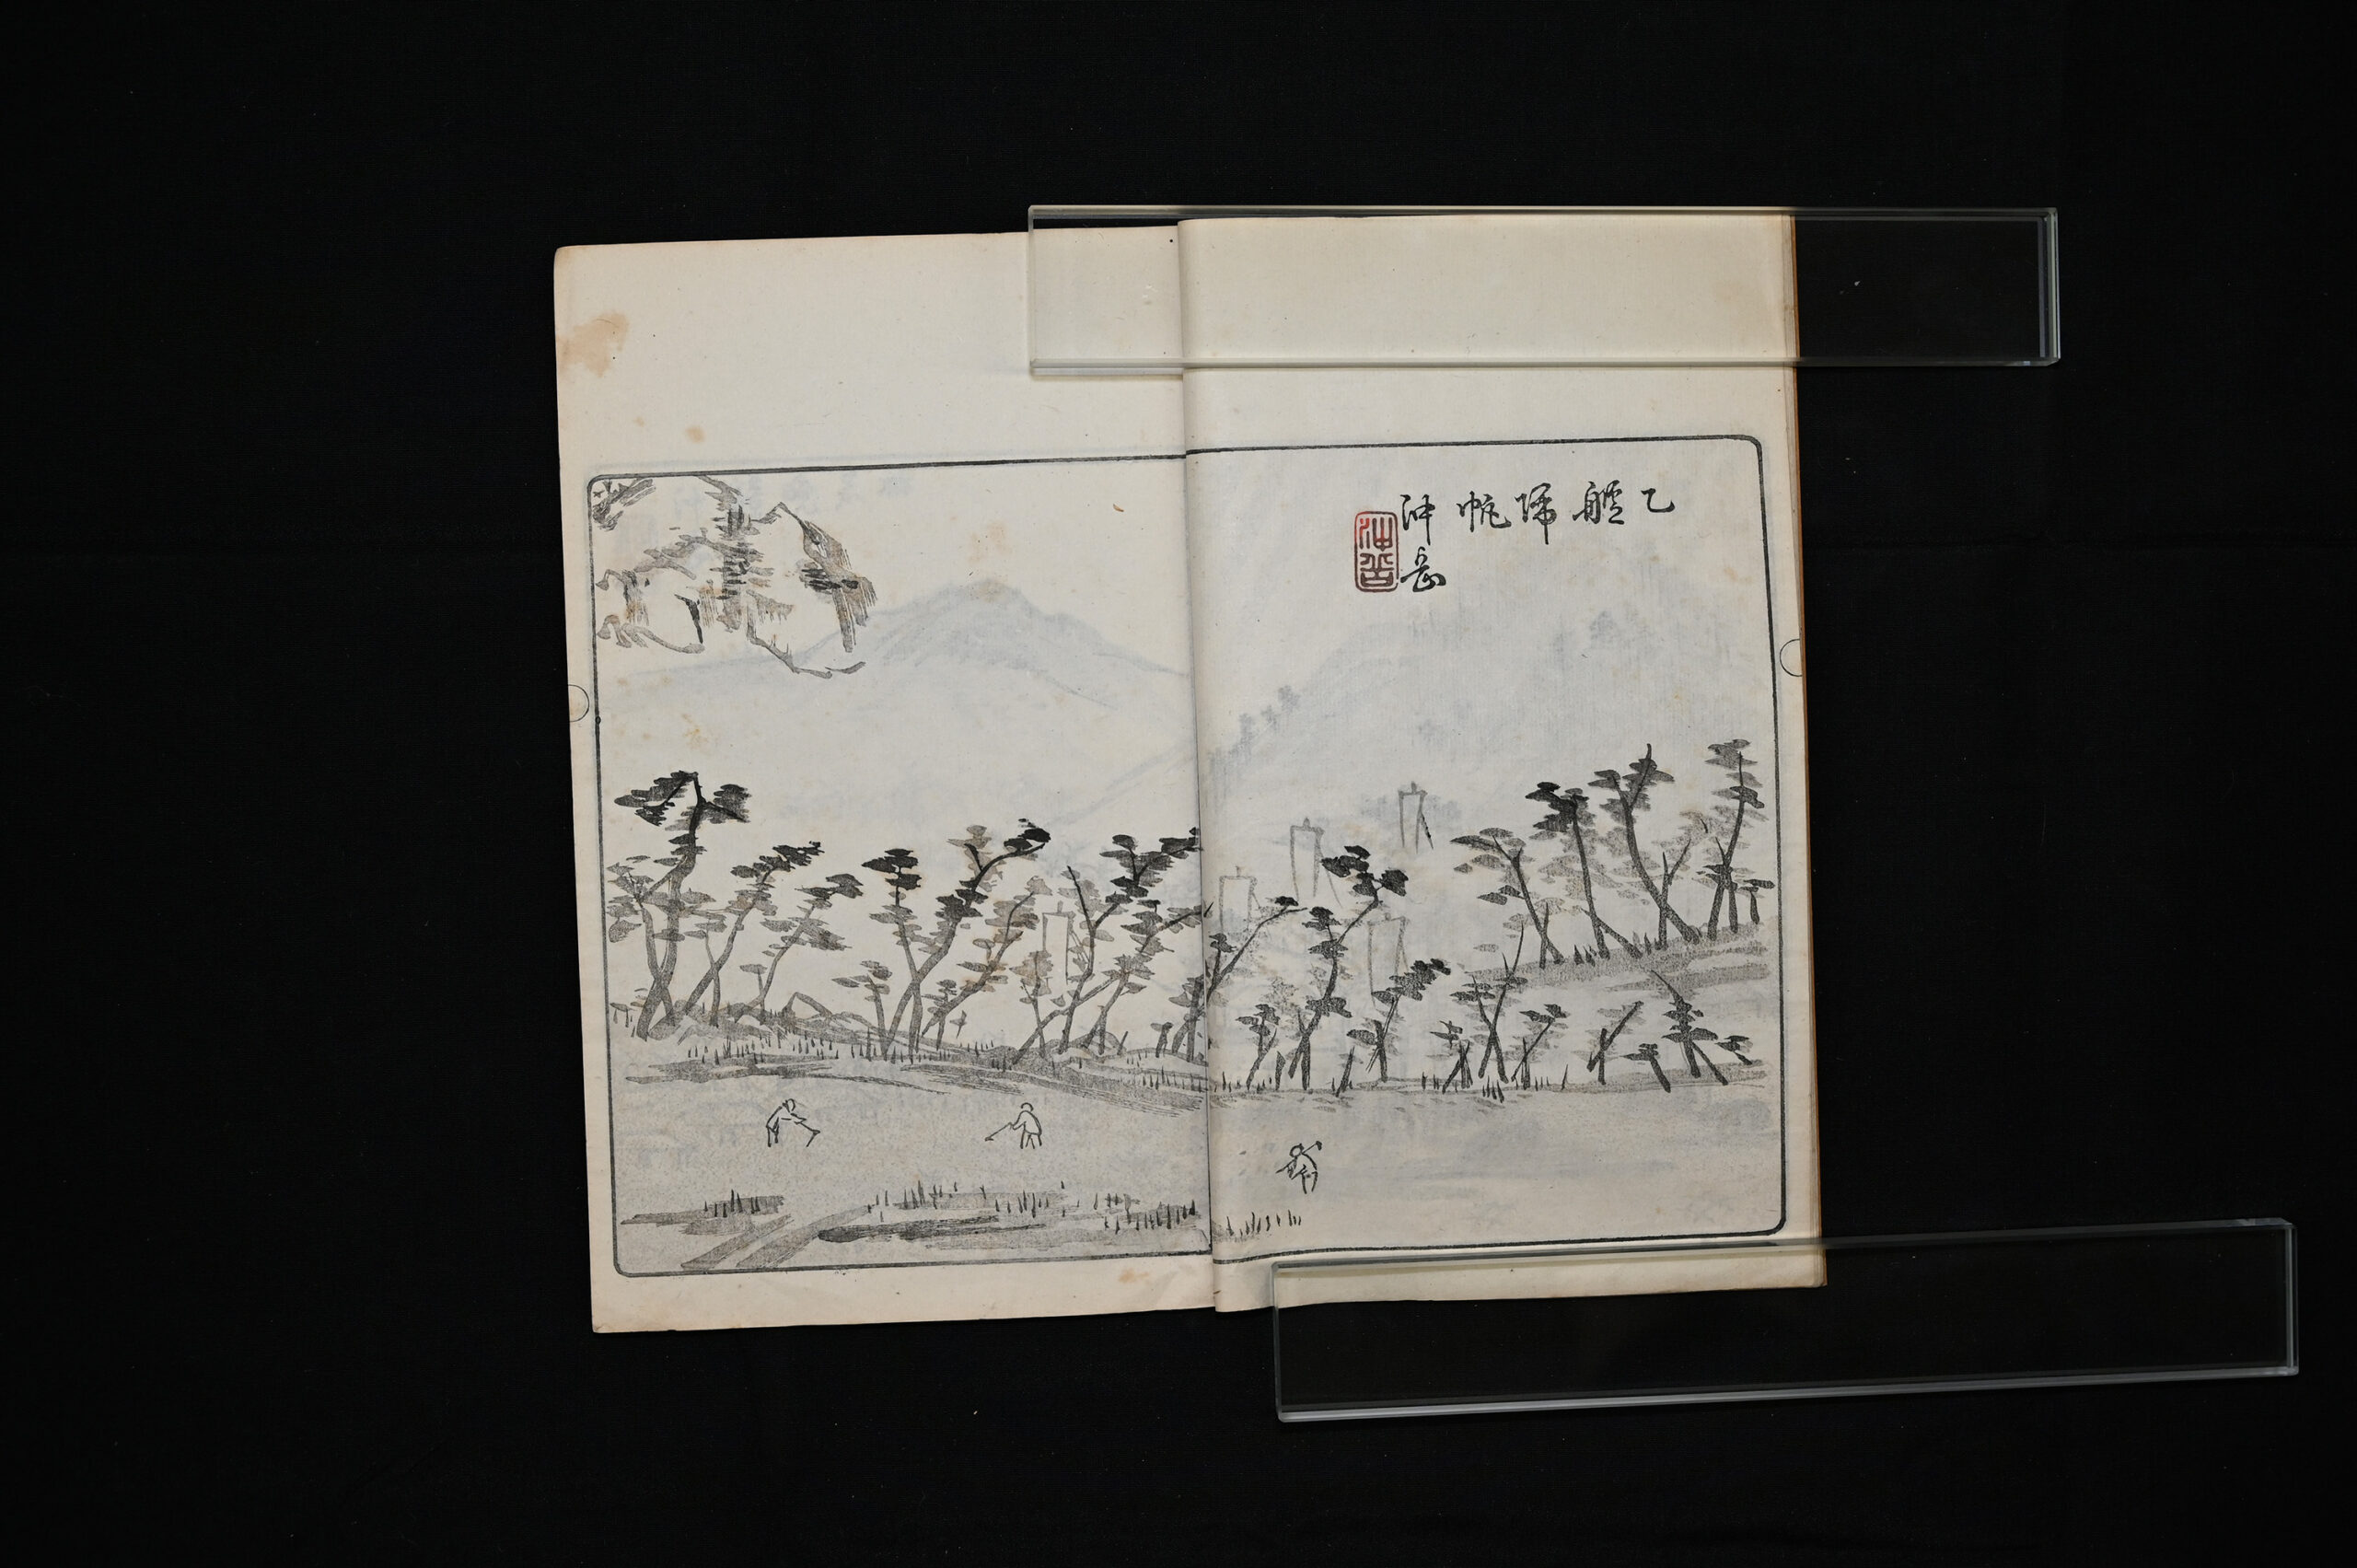 乙艫歸帆
沖岳